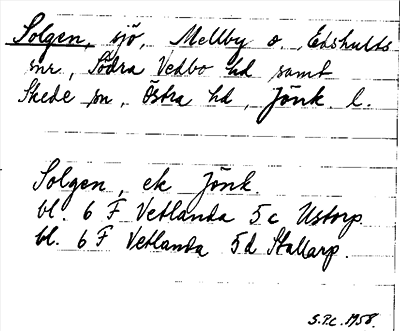 Solgen, sjö, Mellby o. Edshults
snr, Södra Vedbo hd samt
Skede sn, Östra hd, Jönk. l.
Solgen, ek Jönk.
bl. 6 F Vetlanda 5c Ustorp
bl. 6 F Vetlanda 5d Stallarp.
S.P.C. 1958.